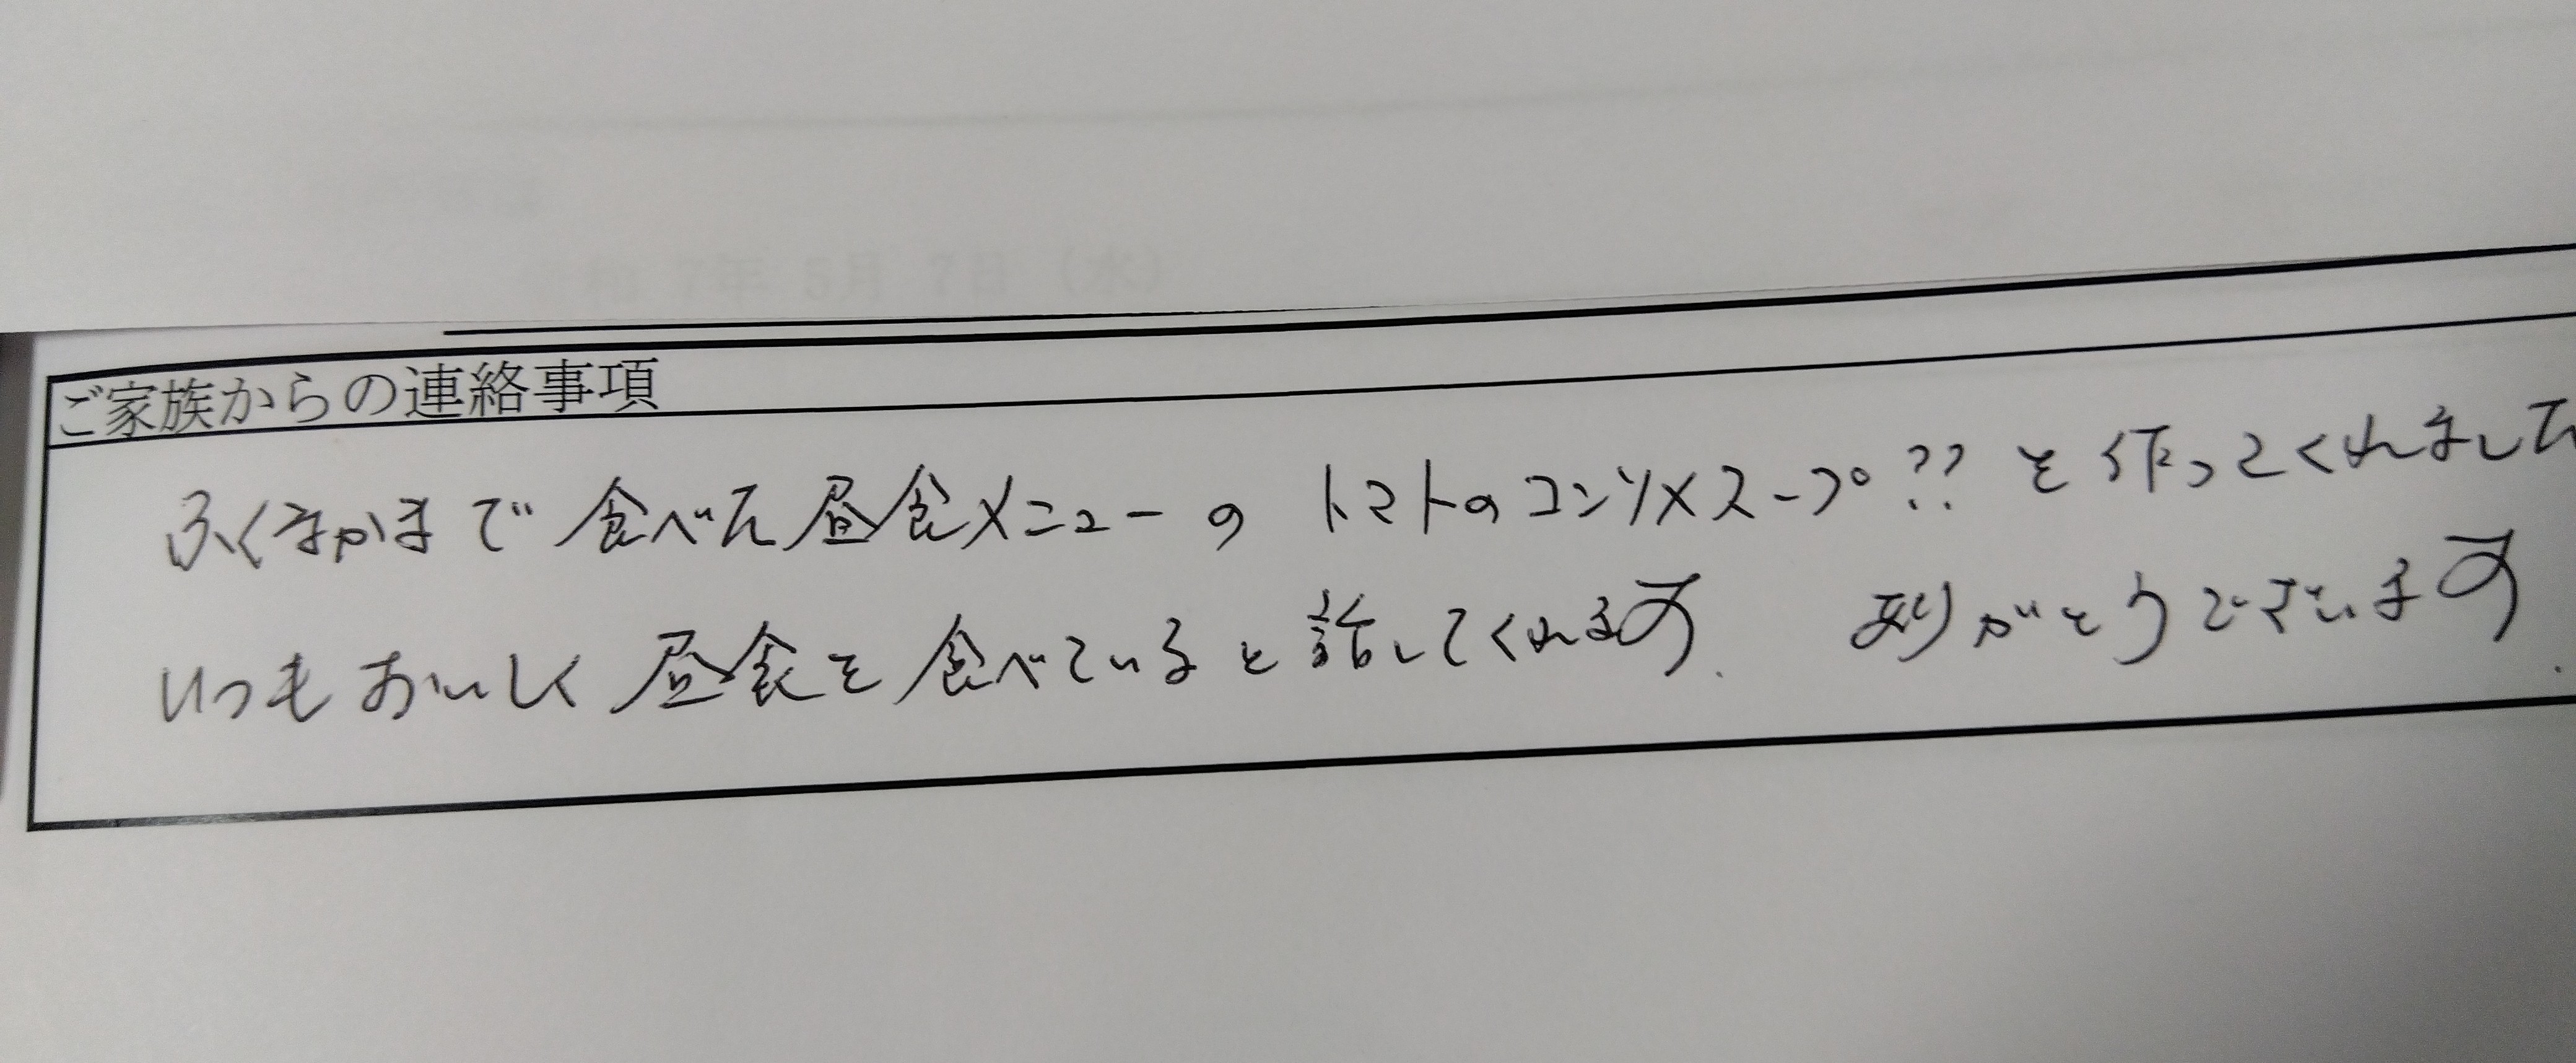 和 7年 5月 7日（水）
ご家族からの連絡事項
ふくまかまで 食べた昼食メニューの トマトのコンソメスープ?? を 作ってくれました
いつもおいしく 昼食を 食べていると 話してくれます. ありがとうございます.